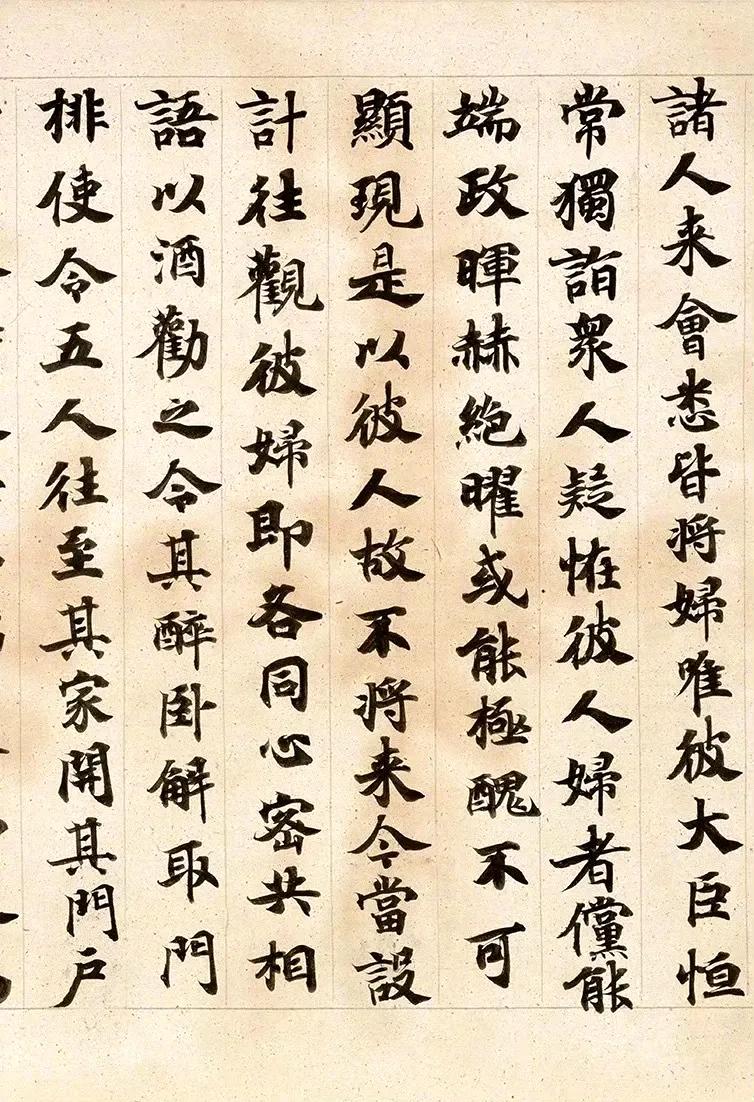 諸人来會悉皆将婦唯彼大臣恒
常獨詣衆人疑恠彼人婦者儻能
端政暉赫絶曜或能極醜不可
顯現是以彼人故不将来今當設
計往觀彼婦即各同心密共相
語以酒勸之令其醉卧解取門
排使令五人往至其家開其門戶